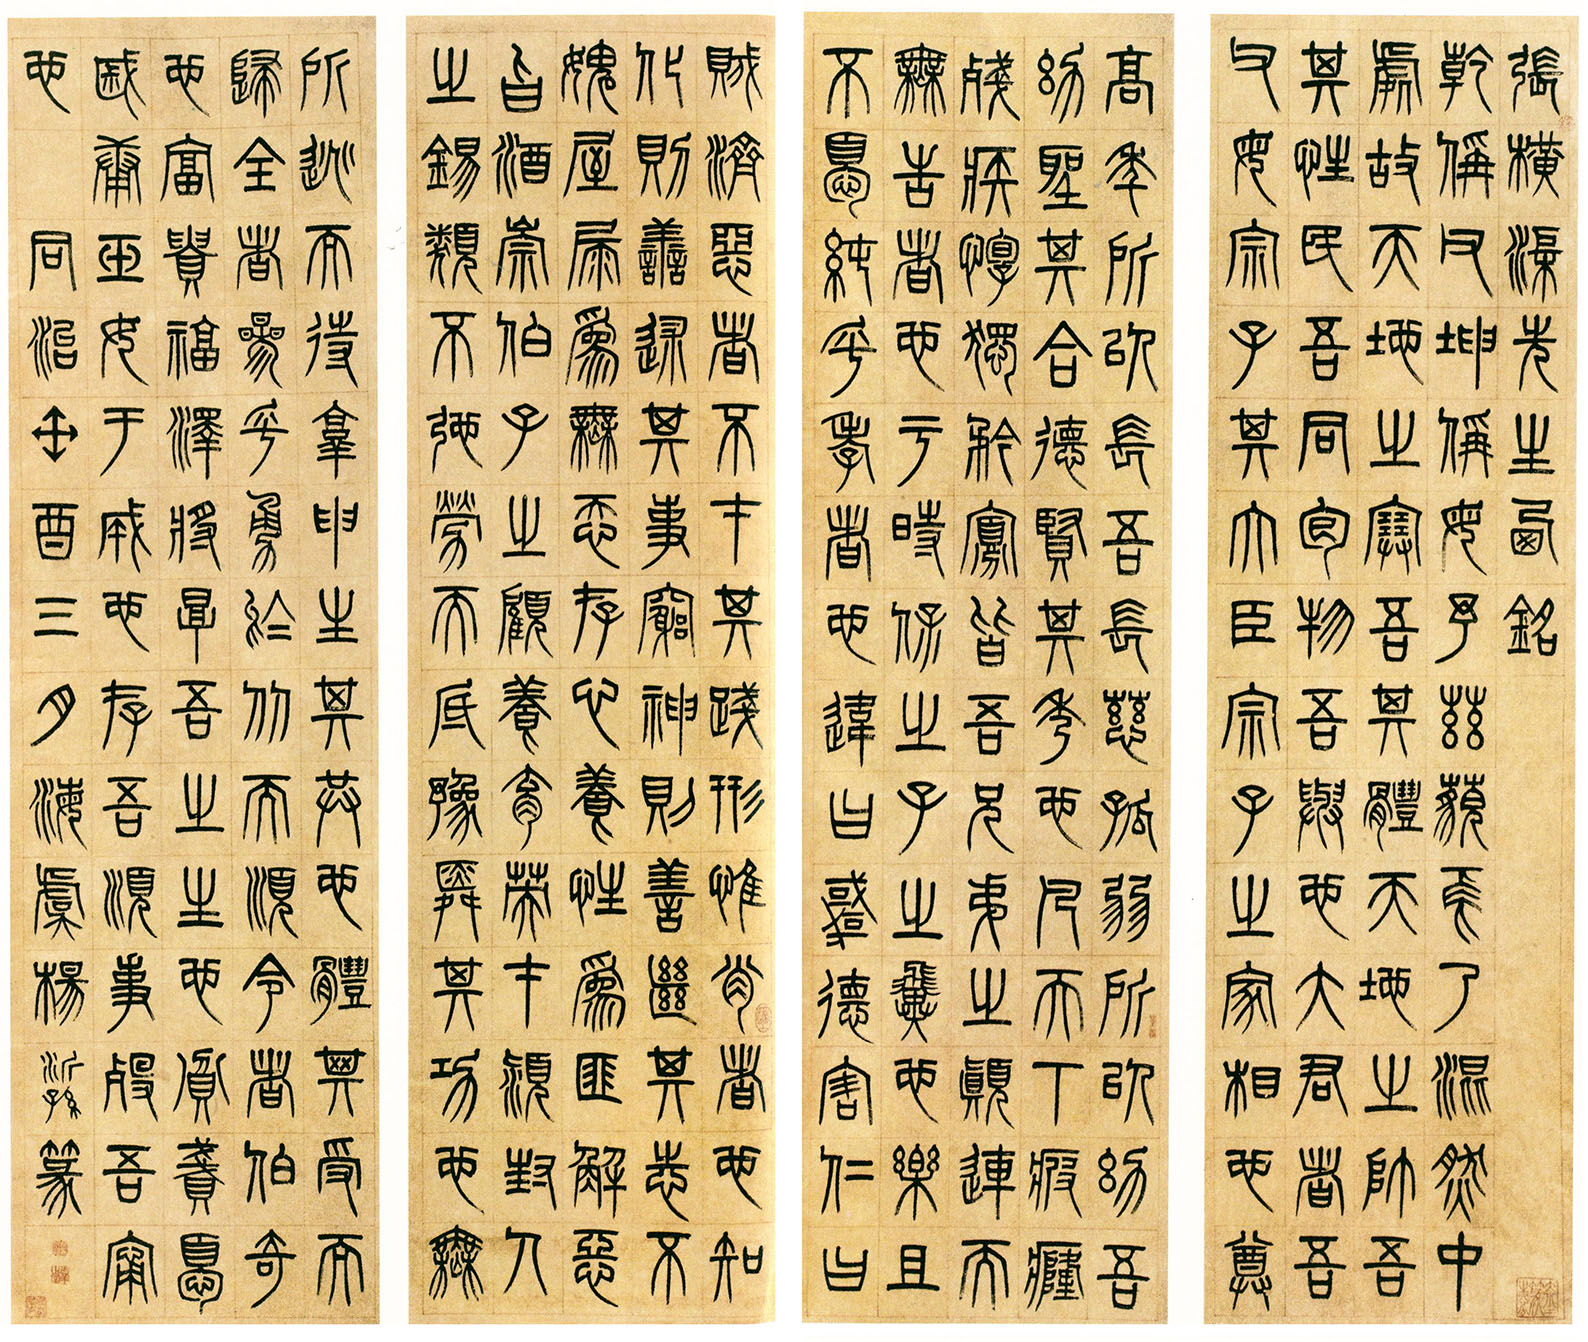 張橫渠先生西銘
乾稱父坤稱母予茲藐焉乃混然中
處故天地之塞吾其體天地之帥吾
其性民吾同胞物吾與也大君者吾
父母宗子其大臣宗子之家相也尊
高年所以長吾長慈孤弱所以幼吾
幼聖其合德賢其秀也凡天下疲癃
殘疾惸獨鰥寡皆吾兄弟之顛連而
無告者也于時保之子之翼也樂且
不憂純乎孝者也違曰悖德害仁曰
賊濟惡者不才其踐形惟肖者也知
化則善述其事窮神則善繼其志不
愧屋漏為無忝存心養性為匪懈惡
旨酒崇伯子之顧養育英才潁封人
之錫類不弛勞而底豫舜其功也無
所逃而待烹申生其恭也體其受而
歸全者參乎勇於從而順令者伯奇
也富貴福澤將厚吾之生也貧賤憂
戚庸玉女于成也存吾順事歿吾寧
也 同治癸酉三月海虞楊沂孫篆